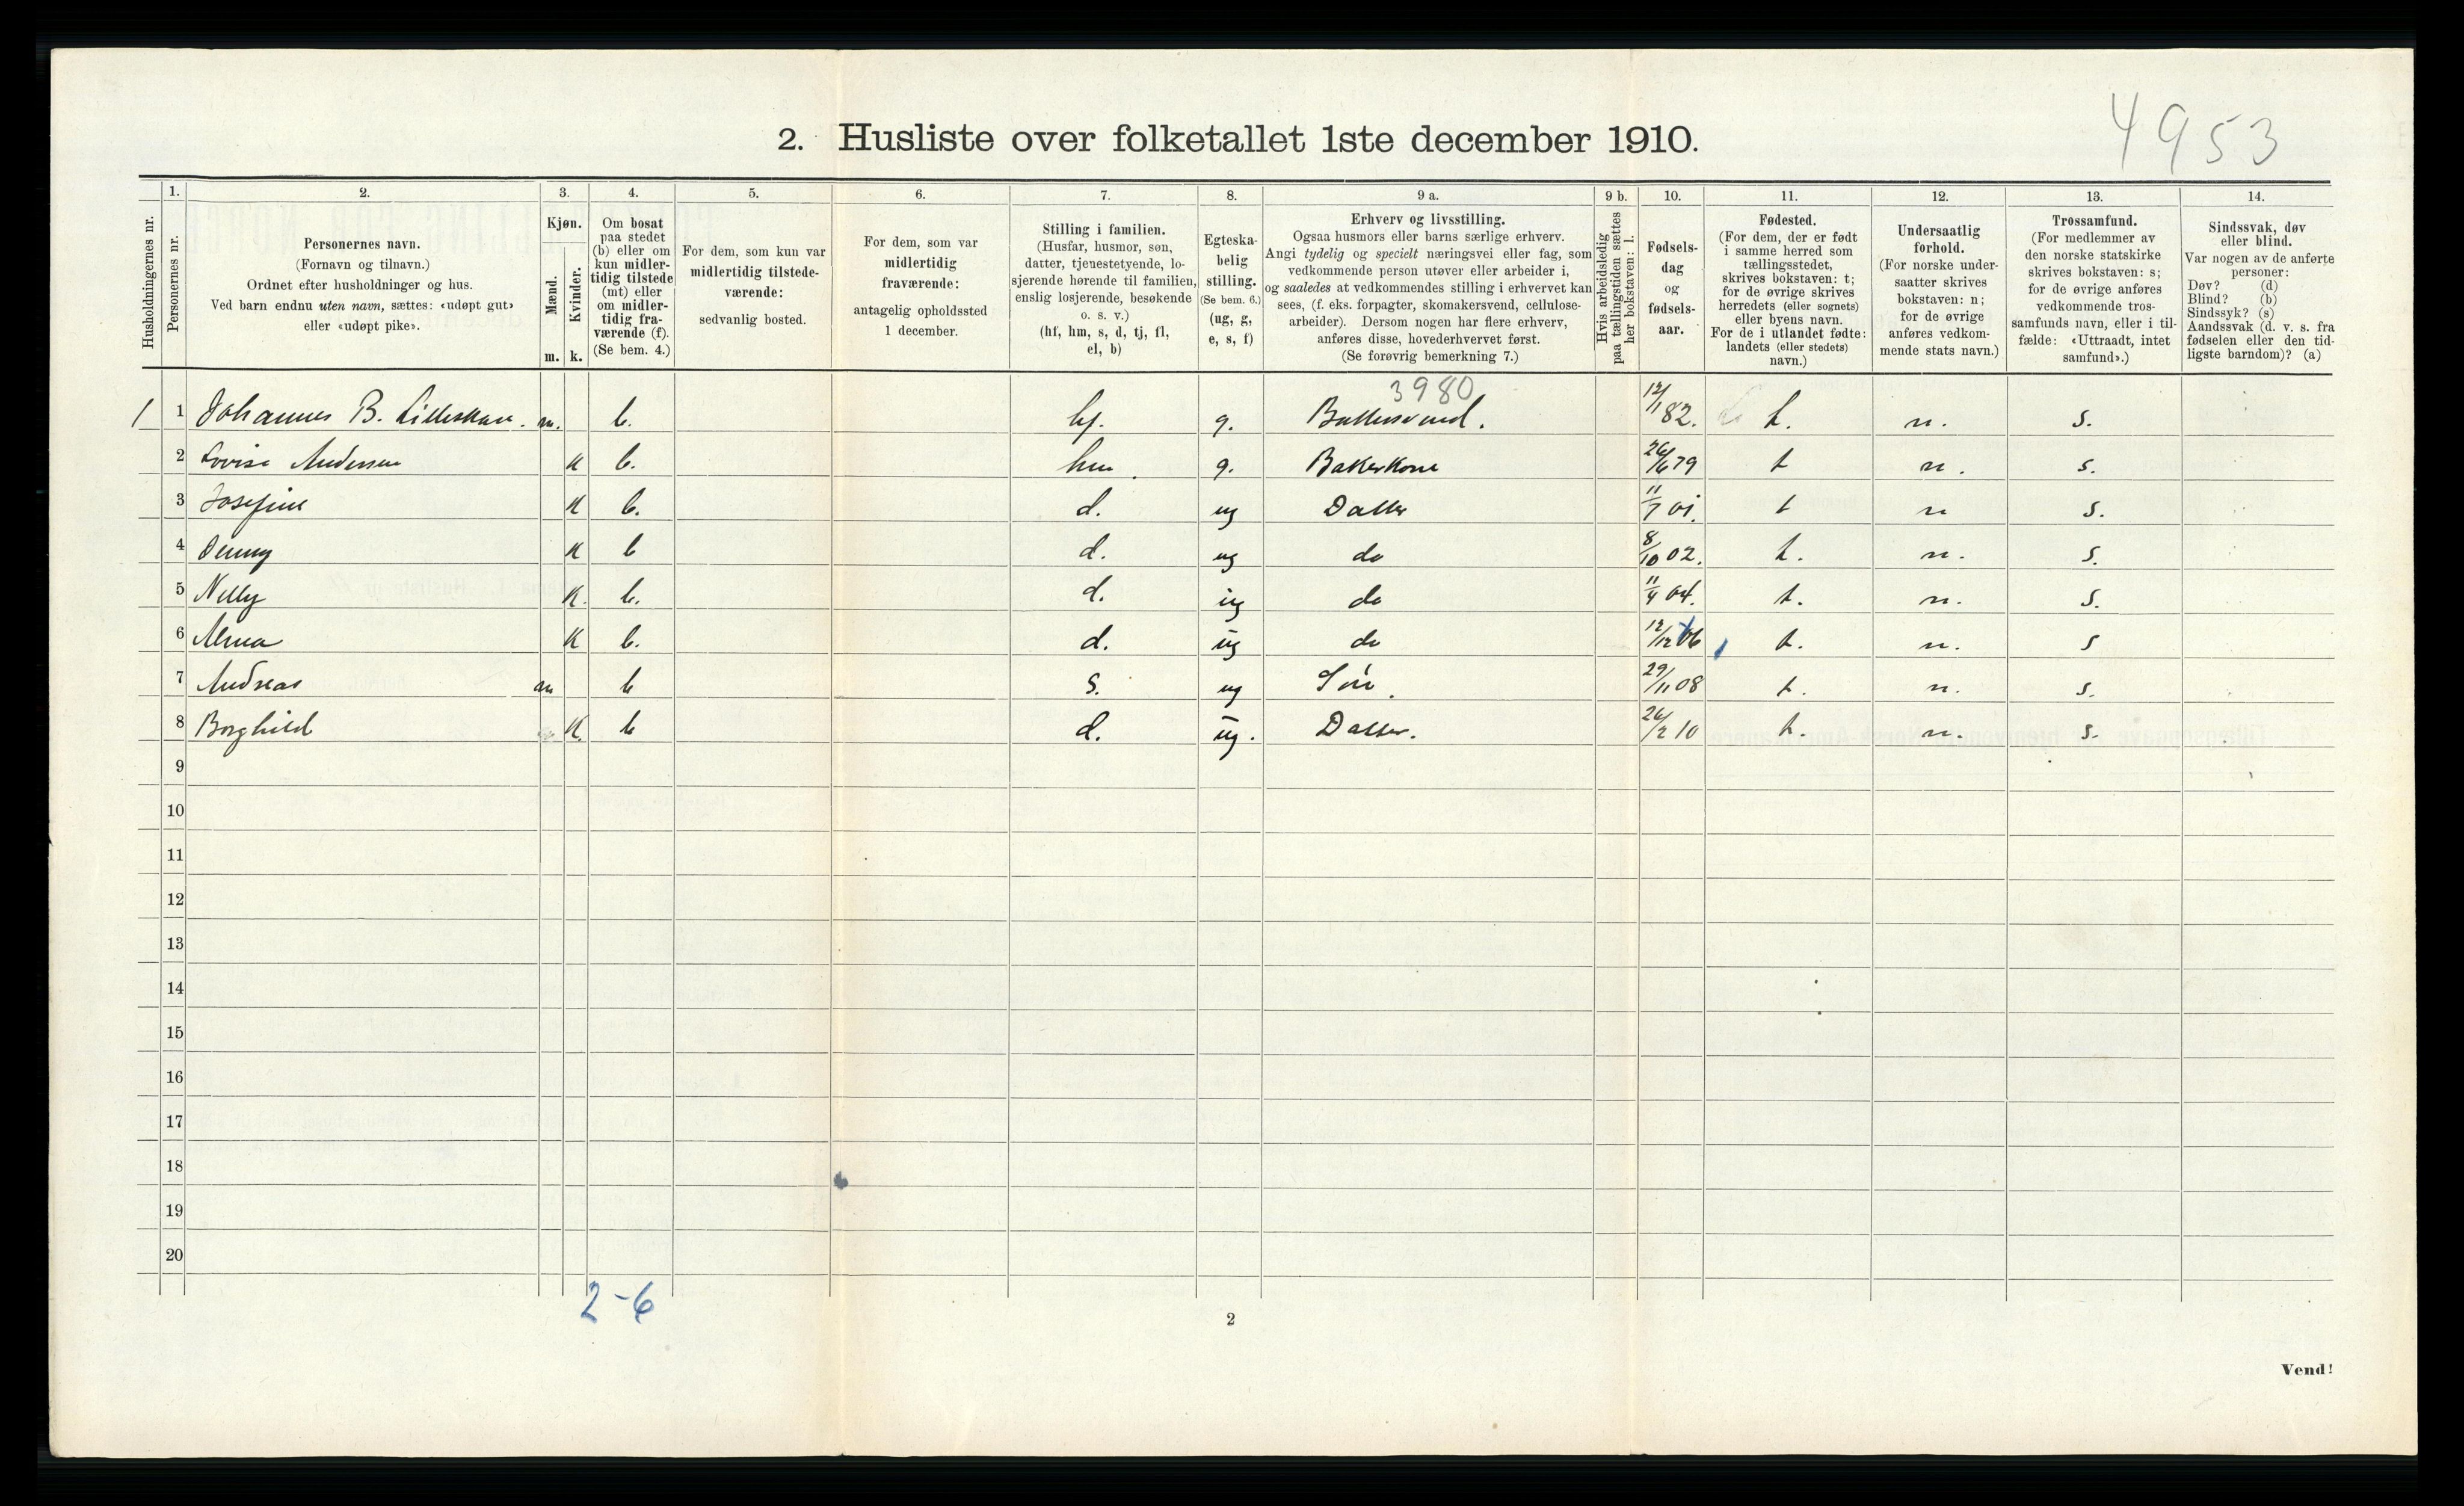 4953
2. Husliste over folketallet 1ste december 1910.
Husholdningernes nr.
1.
Personernes nr.
2.
Personernes navn.
(Fornavn og tilnavn.)
Ordnet efter husholdninger og hus.
Ved barn endnu uten navn, sættes: «udøpt gut»
eller «udøpt pike».
3.
Kjøn.
Mænd.
Kvinder.
m. k.
4.
Om bosat
paa stedet
(b) eller om
kun midler-
tidig tilstede
(mt) eller
om midler-
tidig fra-
værende (f).
(Se bem. 4.)
5.
For dem, som kun var
midlertidig tilstede-
værende:
sedvanlig bosted.
6.
For dem, som var
midlertidig
fraværende:
antagelig opholdssted
1 december.
7.
Stilling i familien.
(Husfar, husmor, søn,
datter, tjenestetyende, lo-
sjerende hørende til familien,
enslig losjerende, besøkende
o. s. v.)
(hf, hm, s, d, tj, fl,
el, b)
8.
Egteska-
belig
stilling.
(Se bem. 6.)
(ug, g,
e, s, f)
9 a.
Erhverv og livsstilling.
Ogsaa husmors eller barns særlige erhverv.
Angi tydelig og specielt næringsvei eller fag, som
vedkommende person utøver eller arbeider i,
og saaledes at vedkommendes stilling i erhvervet kan
sees, (f. eks. forpagter, skomakersvend, cellulose-
arbeider). Dersom nogen har flere erhverv,
anføres disse, hovederhvervet først.
(Se forøvrig bemerkning 7.)
9 b.
Hvis arbeidsledig
paa tællingstiden sættes
her bokstaven: l.
10.
Fødsels-
dag
og
fødsels-
aar.
11.
Fødested.
(For dem, der er født
i samme herred som
tællingsstedet,
skrives bokstaven: t;
for de øvrige skrives
herredets (eller sognets)
eller byens navn.
For de i utlandet fødte:
landets (eller stedets)
navn.)
12.
Undersaatlig
forhold.
(For norske under-
saatter skrives
bokstaven: n;
for de øvrige
anføres vedkom-
mende stats navn.)
13.
Trossamfund.
(For medlemmer av
den norske statskirke
skrives bokstaven: s;
for de øvrige anføres
vedkommende tros-
samfunds navn, eller i til-
fælde: «Uttraadt, intet
samfund».)
14.
Sindssvak, døv
eller blind.
Var nogen av de anførte
personer:
Døv? (d)
Blind? (b)
Sindssyk? (s)
Aandssvak (d. v. s. fra
fødselen eller den tid-
ligste barndom)? (a)
3980
1 1 Johannes B. m. b. hf. g. 12/11 82. t. n. s.
2 Lovise Andersen k b. hm. g. Bakerkone 26/6 79 t n. s.
3 Josefine k b. d. ug Datter 11/7 01. t n s.
4 Jenny k b d. ug do 8/10 02. t. n. s.
5 Nelly k. b. d. ug do 11/4 04. t. n. s.
6 Alma k b. d. ug do 12/12 06 t. n. s
7 Andreas m b s. ug Søn. 29/11 08 t. n. s.
8 Borghild k. b d. ug. Datter. 26/2 10 t. n. s.
9
10
11
12
13
14
15
16
17
18
19
20
2-6
2
Vend!